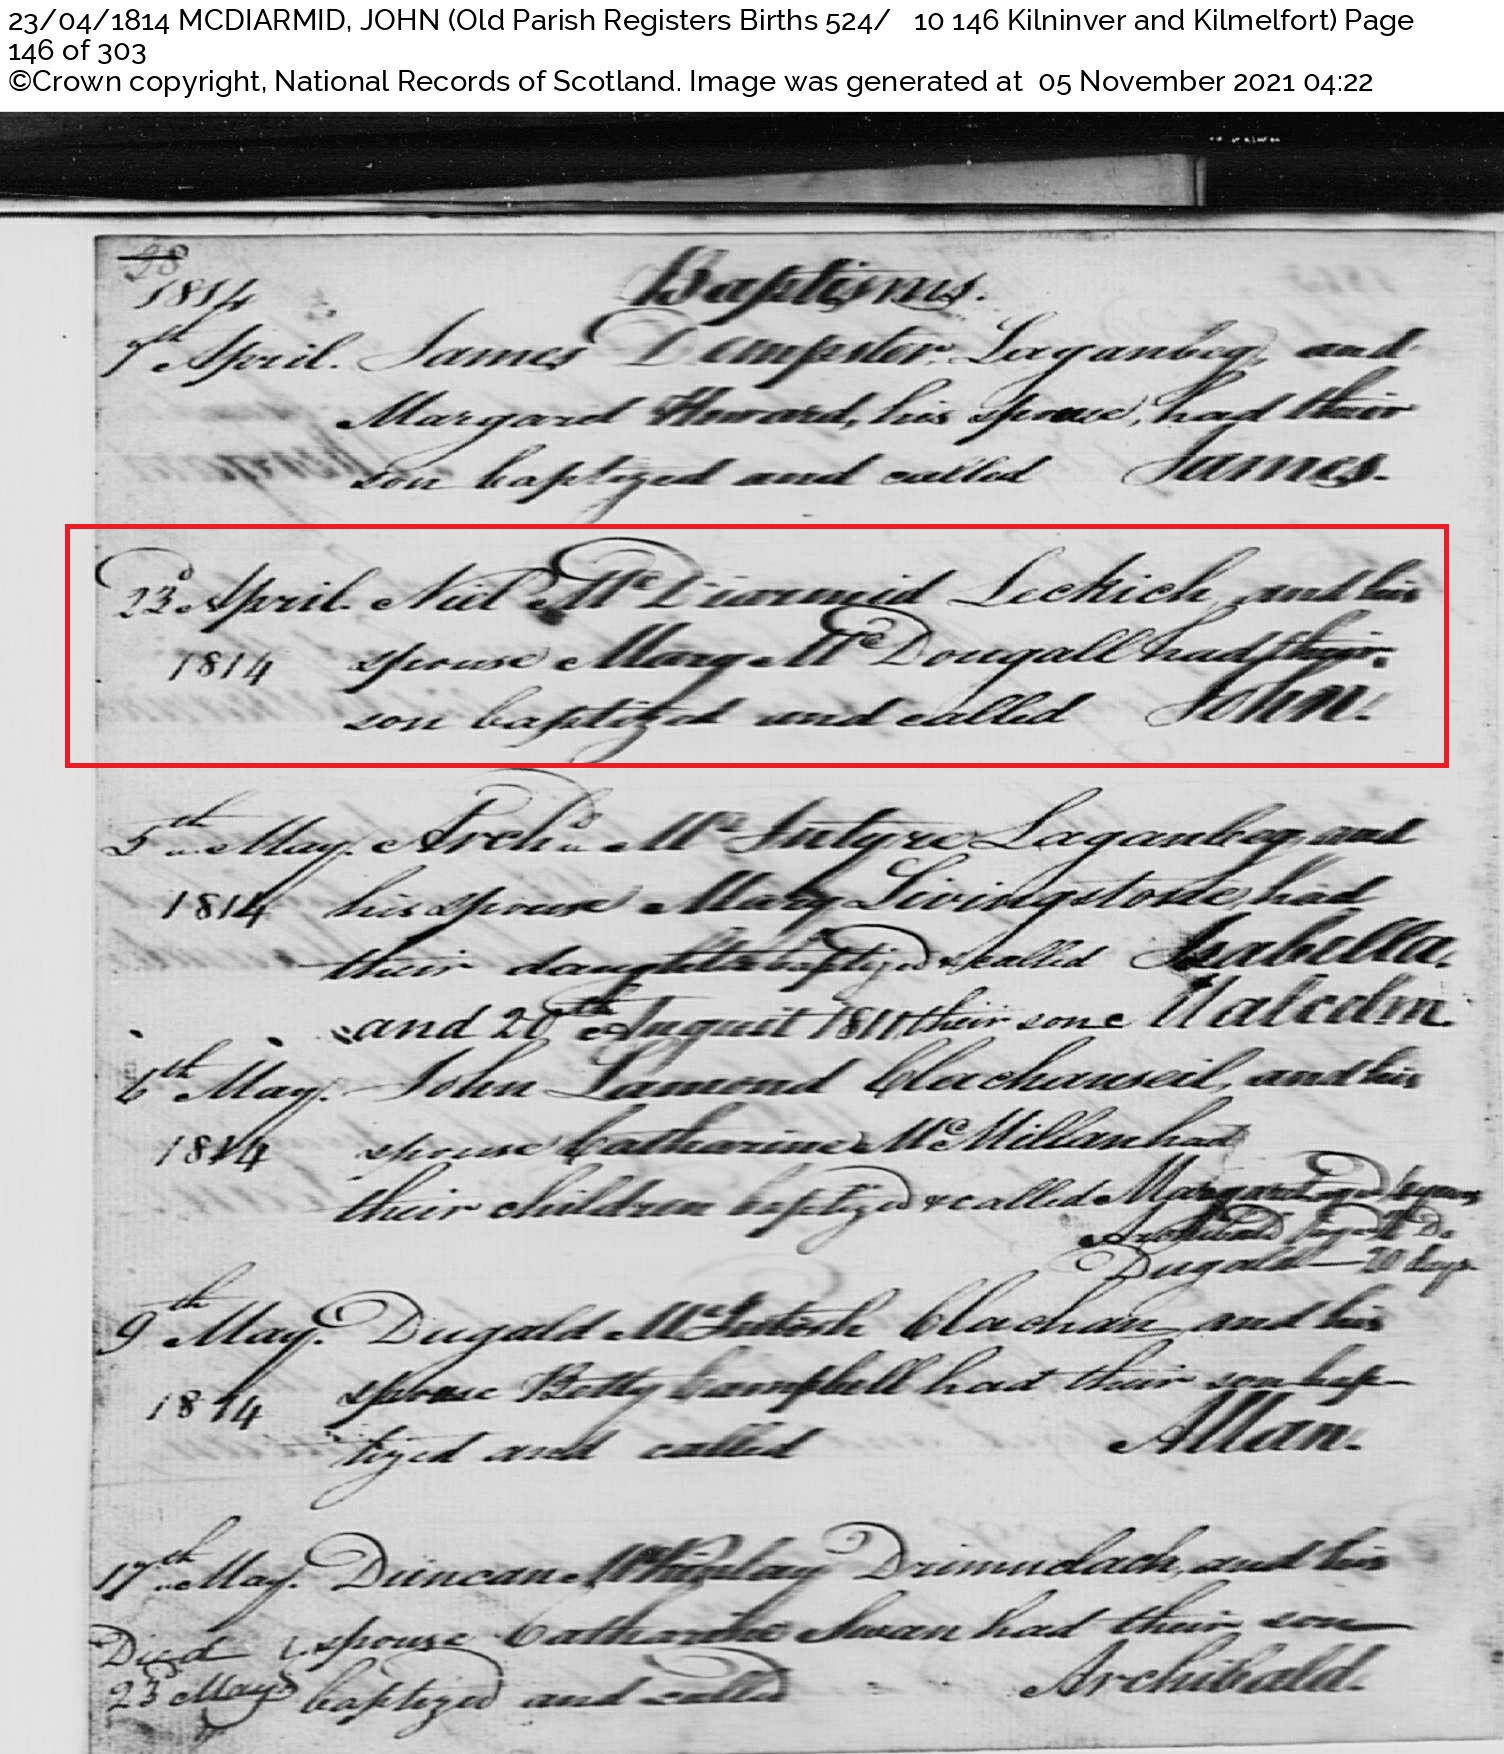 23/04/1814 MCDIARMID, JOHN (Old Parish Registers Births 524/   10 146 Kilninver and Kilmelfort) Page
146 of 303
©Crown copyright, National Records of Scotland. Image was generated at  05 November 2021 04:22
98
1814 Baptisms.
7th April. James Dempster Laganbeg, and
Margaret Howard, his spouse, had their
son baptized and called James.
23d April. Niel McDiarmid Leckich, and his
1814 spouse Mary McDougall had their
son baptized and called John.
5th May. Archd. McIntyre Laganbeg, and
1814 his spouse Mary Livingstone, had
their daughter baptized & called Isabella.
and 20th August 1811 their son Malcolm.
6th May. John Lamond Clachanseil, and his
1814 spouse Catharine McMillan had
their children baptized & called Margaret aged years
Archibald Do
Dugald — 20 days
9th May. Dugald McIntosh Clachan, and his
1814 spouse Betty Campbell had their son bap-
tized and called Allan.
17th May. Duncan McKinlay, and his
Died spouse Catharine Swan had their son
23d May baptized and called Archibald.